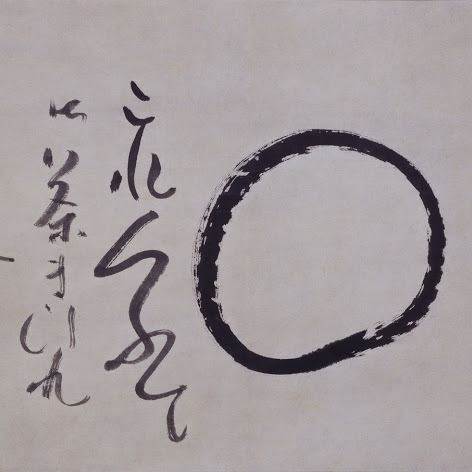 これくふて
御茶まいれ